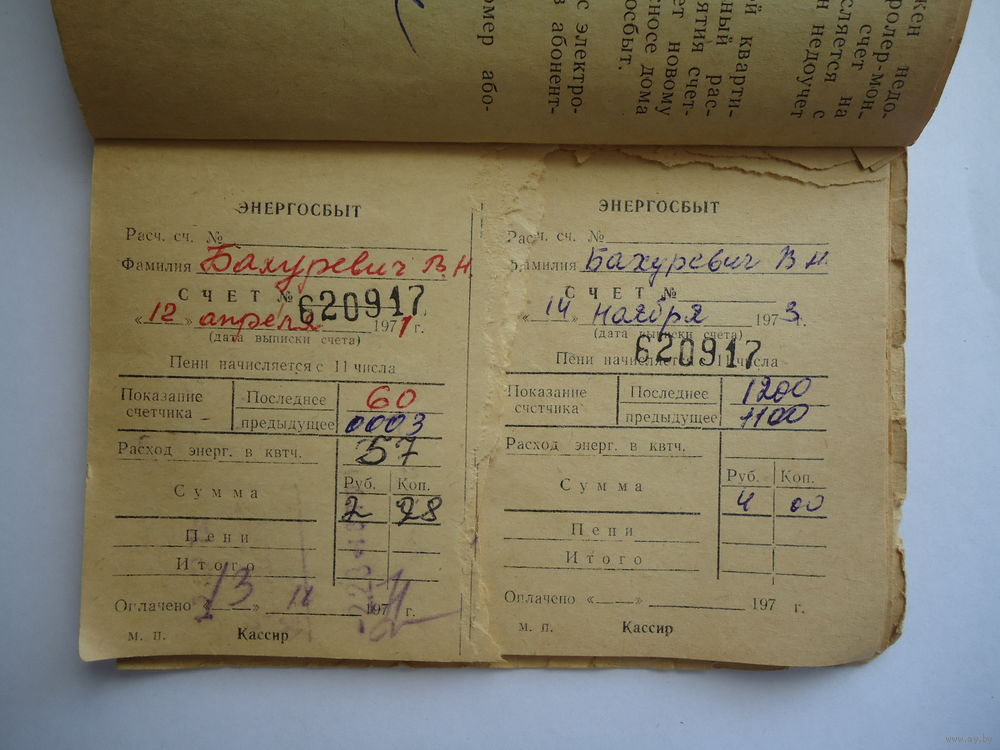 жен недо-
ролер-мон-
счет на
сляется с
н недоучет
ой кварти-
ный рас-
ятия счет-
ет новому
сносе дома
осбыт.
с электро-
в абонент-
омер або-
ЭНЕРГОСБЫТ
Расч. сч. №
Фамилия Бахуревич В.Н.
СЧЕТ № 620917
«12» апреля 1971 г.
(дата выписки счета)
Пени начисляется с 11 числа
Показание счетчика
Последнее 60
предыдущее 0003
Расход энерг. в квтч. 57
Руб. Коп.
Сумма 2 28
Пени
Итого
Оплачено «13» 197 г.
м. п. Кассир
ЭНЕРГОСБЫТ
Расч. сч. №
Фамилия Бахуревич В Н.
СЧЕТ №
«14» ноября 1973 г.
(дата выписки счета)
620917
Пени начисляется с 11 числа
Показание счетчика
Последнее 1200
предыдущее 1100
Расход энерг. в квтч.
Руб. Коп.
Сумма 4 00
Пени
Итого
Оплачено «  » 197 г.
м. п. Кассир
www.ay.by